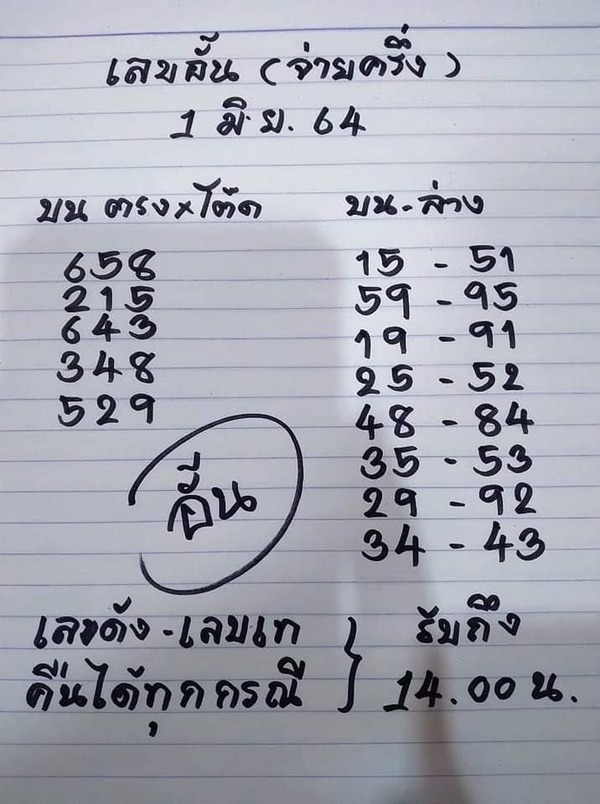 เลขอั้น (จ่ายครึ่ง)
1 มิ.ย. 64
บน ตรง×โต๊ด
658
215
643
348
529
บน-ล่าง
15 - 51
59 - 95
19 - 91
25 - 52
48 - 84
35 - 53
29 - 92
34 - 43
อั้น
เลขดัง - เลขเท
คืนได้ทุกกรณี
รับถึง
14.00 น.